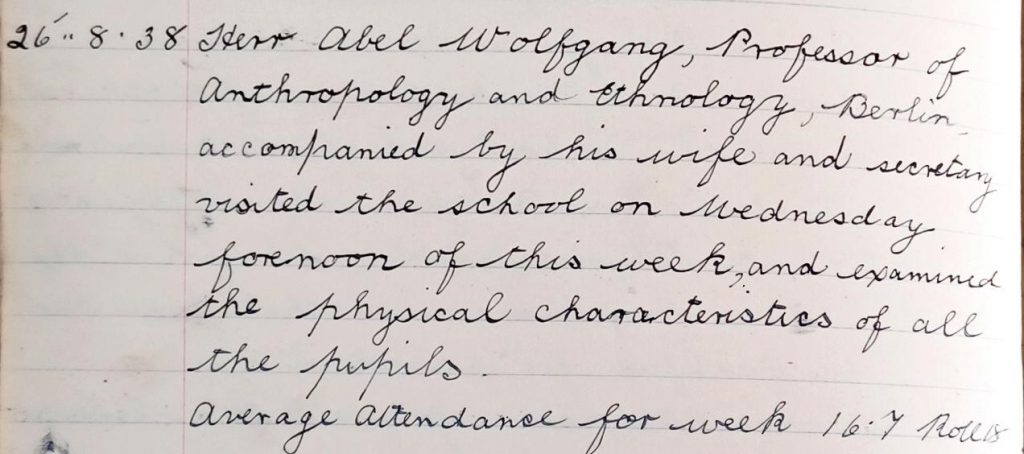 26.. 8 . 38 Herr Abel Wolfgang, Professor of
Anthropology and Ethnology, Berlin,
accompanied by his wife and secretary
visited the school on Wednesday
forenoon of this week, and examined
the physical characteristics of all
the pupils.
Average Attendance for week 16.7 Roll 18